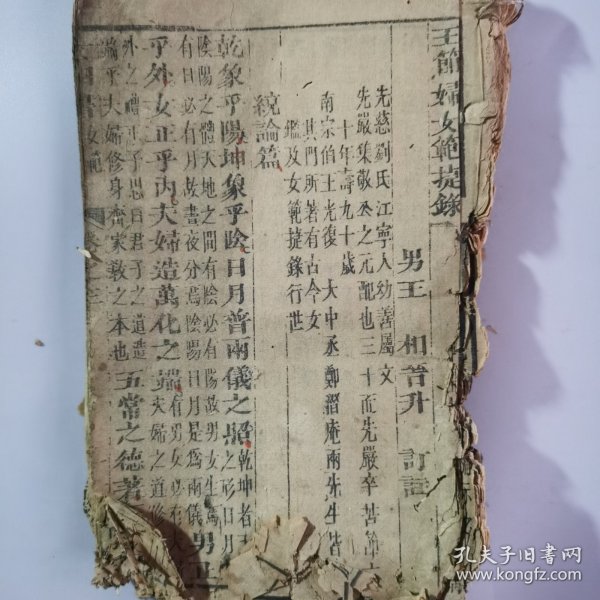 王節婦女範捷錄
男王 相晉升 訂註
先慈劉氏江寧人幼善屬文
先嚴集敬公之元配也三十而先嚴卒苦節六
十年壽九十歲
南宗伯王光復 大中丞鄭潛庵兩先生皆
其門所著有古今女
鑑及女範捷錄行世
統論篇
乾象乎陽坤象乎陰日月普兩儀之照乾坤者
之形日月
陰陽之體天地之間有陰必有陽故男女生焉
有日必有月故晝夜分焉陰陽日月是爲兩儀男正
乎外女正乎內夫婦造萬化之端有男女
夫婦之道
外之禮正子思曰君子之道造
端乎夫婦修身齊家教之本也五常之德著
女範
孔夫子旧书网
www.kongfz.com